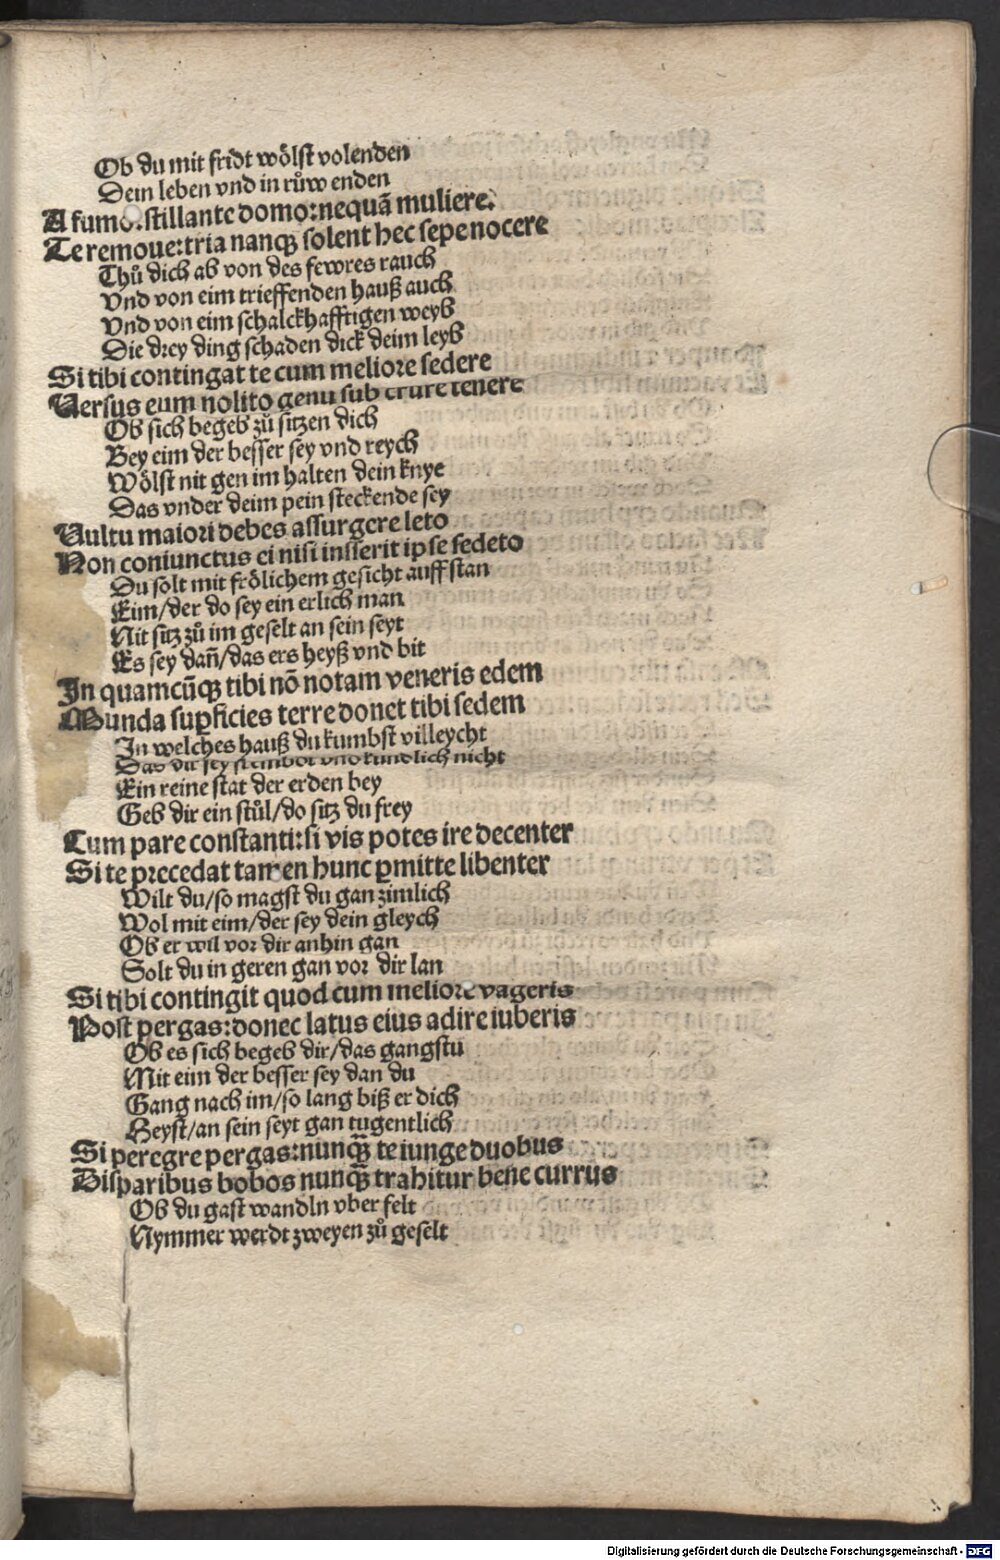 Ob du mit fridt wölst volenden
Dein leben vnd in růw enden
A fumo: stillante domo: nequã muliere.
Te remoue: tria nanqꝫ solent hec sepe nocere
Thů dich ab von des fewres rauch
Vnd von eim trieffenden hauß auch
Vnd von eim schalckhafftigen weyb
Die drey ding schaden dick deim leyb
Si tibi contingat te cum meliore sedere
Versus eum nolito genu sub crure tenere
Ob sich begeb zů sitzen dich
Bey eim der besser sey vnd reych
Wölst nit gen im halten dein knye
Das vnder deim pein steckende sey
Vultu maiori debes assurgere leto
Non coniunctus ei nisi insserit ipse sedeto
Du solt mit frölichem gesicht auff stan
Eim/der do sey ein erlich man
Nit sitz zů im geselt an sein seyt
Es sey dañ/das ers heyß vnd bit
In quamcũqꝫ tibi nõ notam veneris edem
Munda suꝑficies terre donet tibi sedem
In welches hauß du kumbst villeycht
Das dir sey frembdt vnd kundlich nicht
Ein reine stat der erden bey
Geb dir ein stůl/do sitz du frey
Cum pare constanti: si vis potes ire decenter
Si te precedat tamen hunc ꝑmitte libenter
Wilt du/so magst du gan zimlich
Wol mit eim/der sey dein gleych
Ob er wil vor dir anhin gan
Solt du in geren gan vor dir lan
Si tibi contingit quod cum meliore vageris
Post pergas: donec latus eius adire iuberis
Ob es sich begeb dir/das gangstu
Mit eim der besser sey dan du
Gang nach im/so lang biß er dich
Heyst/an sein seyt gan tugentlich
Si peregre pergas: nunqꝫ te iunge duobus
Disparibus bobos nunqꝫ trahitur bene currus
Ob du gast wandln vber felt
Nymmer werdt zweyen zů geselt
Digitalisierung gefördert durch die Deutsche Forschungsgemeinschaft - DFG